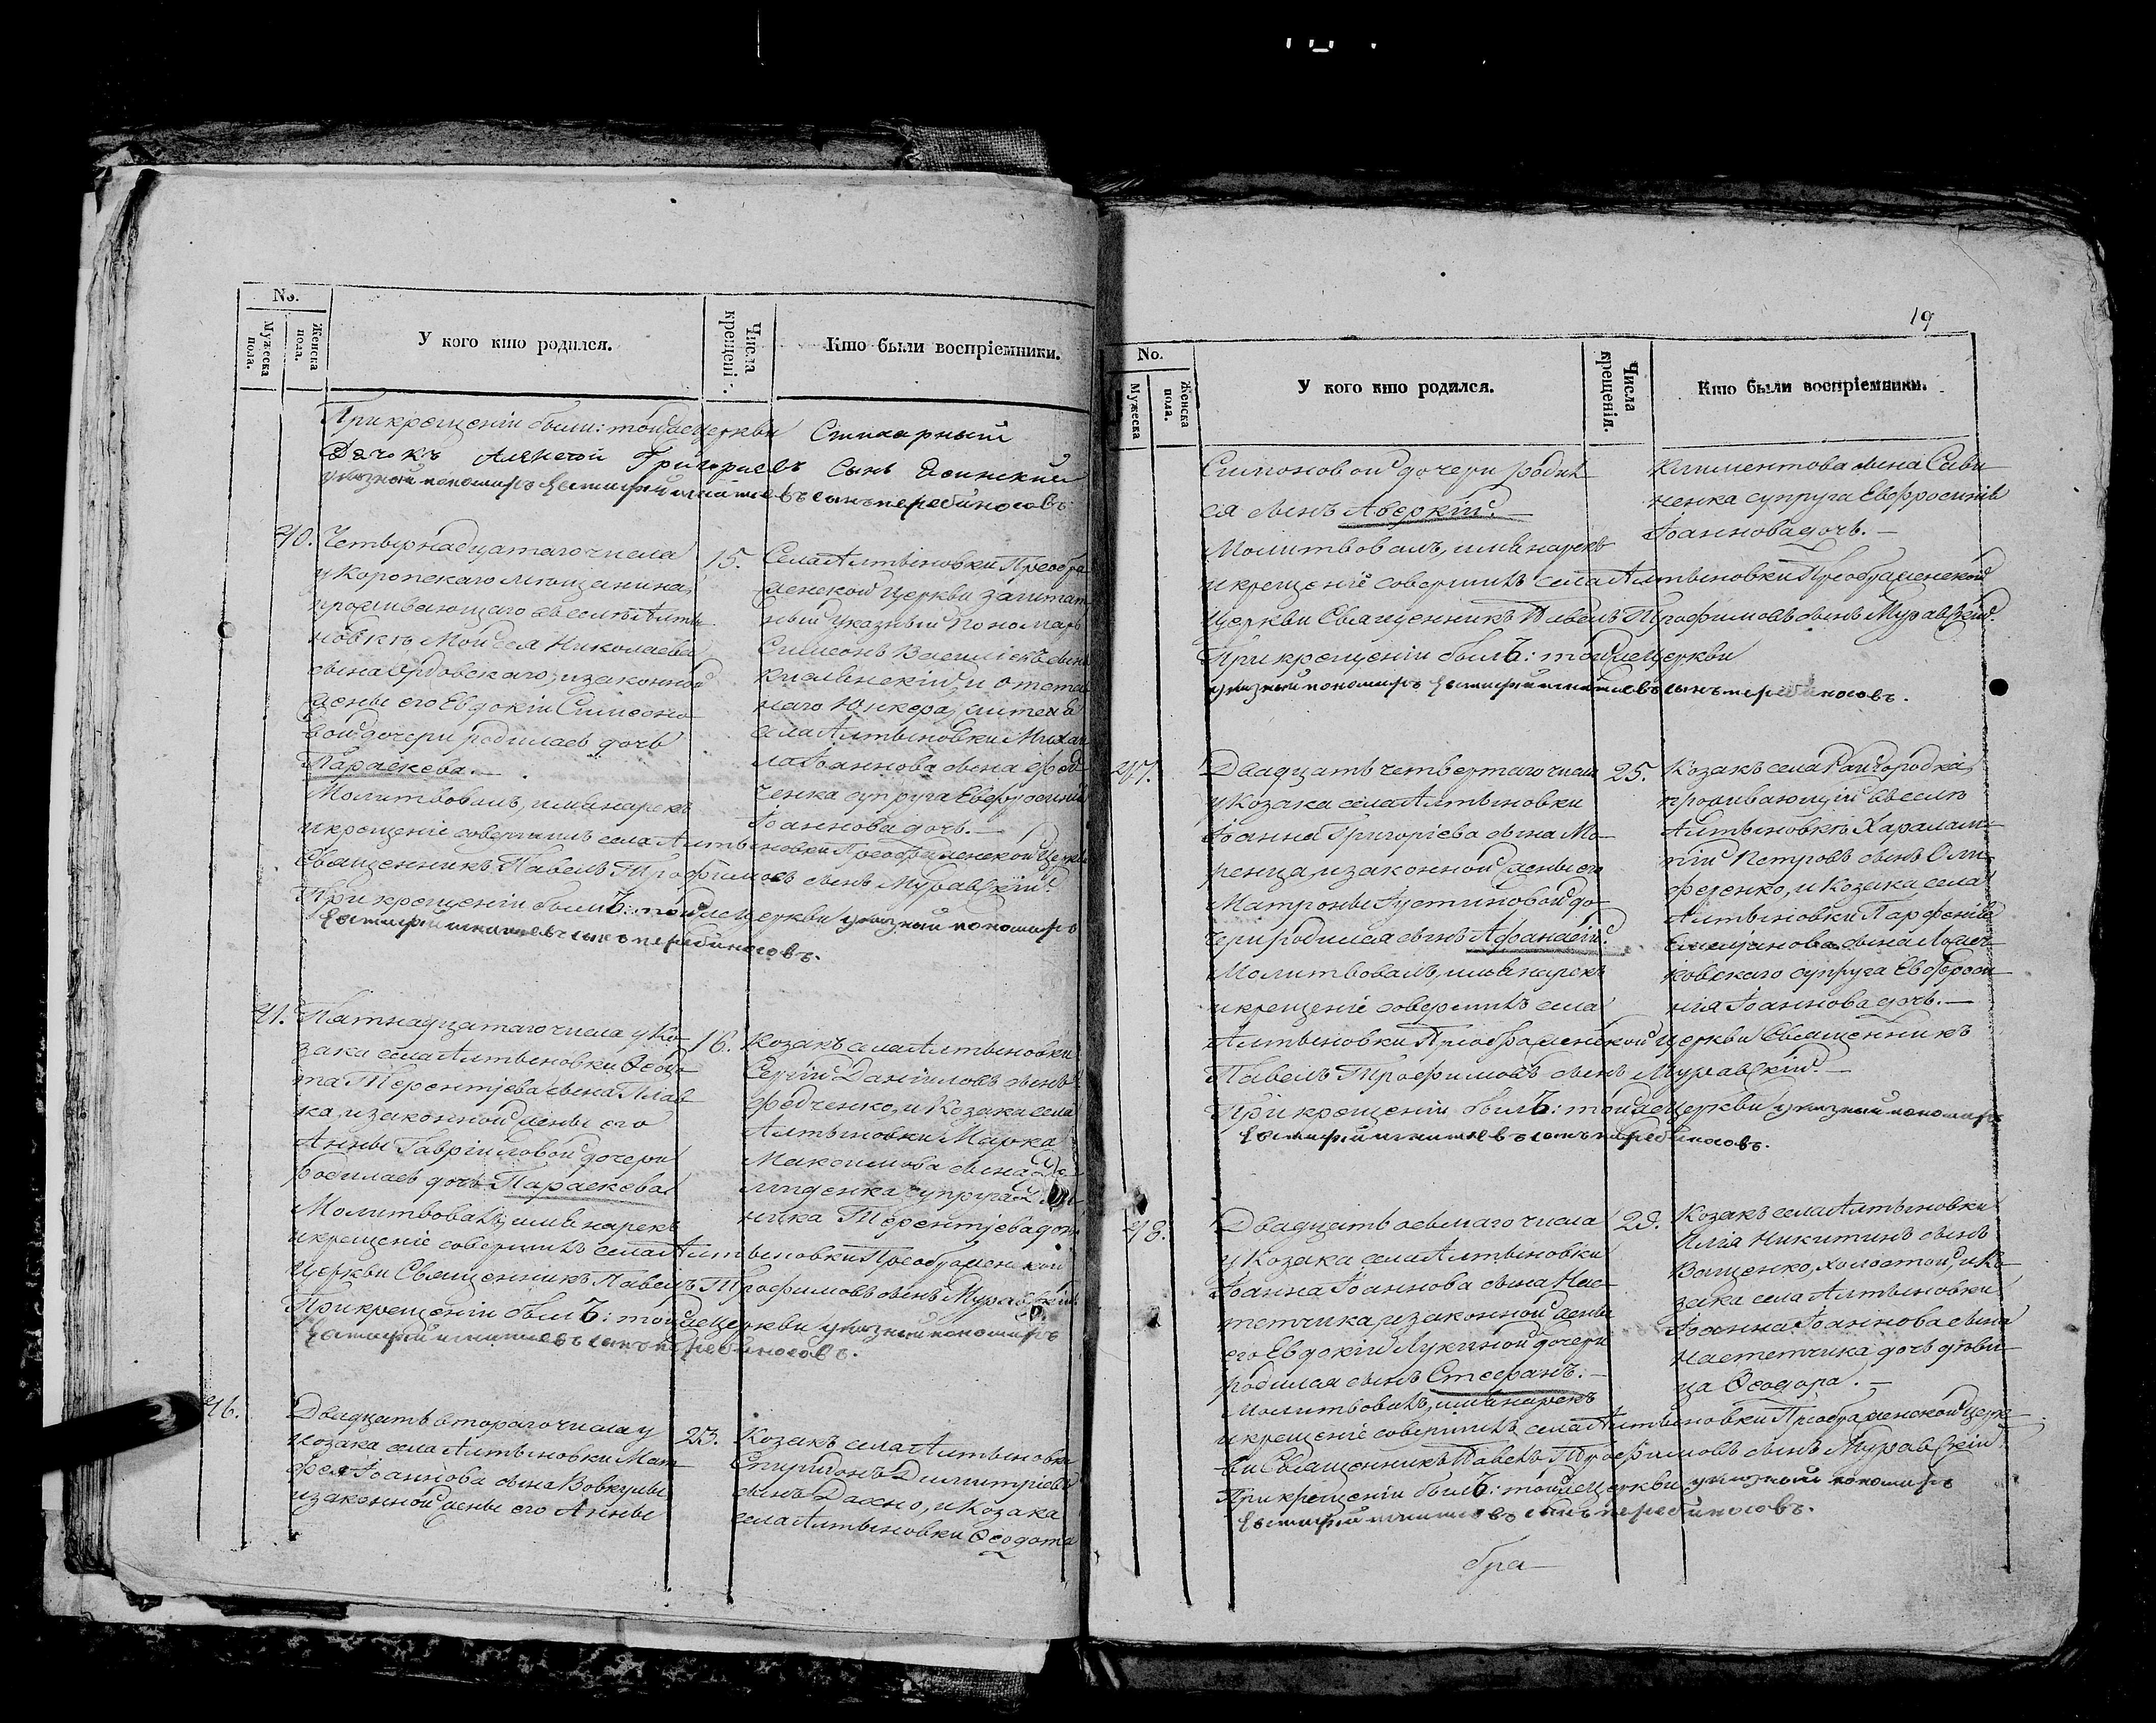 No.
Мужеска пола.
Женска пола.
У кого кто родился.
Числа крещенія.
Кто были воспріемники.
При крещеніи были: тойже церкви Стихарный
Дячокъ Алексѣй Григорьевъ сынъ
указной пономарь сынъ Перебиносовъ
40.
Четырнадцатаго числа
у Коропскаго мѣщанина,
проживающаго въ селѣ Алты-
новкѣ Мойсея Николаева
сына и законной
жены его Евдокіи Симеоно-
вой дочери родилась дочь
Параскева.
Молитвовалъ, имя нарекъ
и крещеніе совершилъ села Алтыновки Преображенской церкви
Священникъ Павелъ Трофимовъ сынъ Муравскій.
При крещеніи былъ: тойже церкви указный пономарь
сынъ Перебиносовъ.
15.
Села Алтыновки Преобра-
женской церкви заштат-
ный указный Пономарь
Симеонъ Василіевъ сынъ
и отстав-
наго Юнкера, жителя
села Алтыновки Михаи-
ла Іоаннова сына Фед-
ченка супруга Евфросинія
Іоаннова дочь.
41.
Пятнадцатаго числа у Ко-
зака села Алтыновки Ѳеодо-
та Терентіева сына Плав-
ка, и законной жены его
Анны Гавріиловой дочери
родилась дочь Параскева
Молитвовалъ, имя нарекъ
и крещеніе совершилъ села Алтыновки Преображенской
церкви Священникъ Павелъ Трофимовъ сынъ Муравскій.
При крещеніи былъ: тойже церкви указный пономарь
сынъ Перебиносовъ.
16.
Козакъ села Алтыновки
Сергій Даніиловъ сынъ
Федченко, и Козака села
Алтыновки Марка
Максимова сына
супруга
Терентіева дочь
46.
Двадцать втораго числа у
козака села Алтыновки Мат-
фея Іоаннова сына Вовкулы
и законной жены его Анны
23.
Козакъ села Алтыновки
Спиридонъ Димитріевъ
сынъ Дахно, и Козака
села Алтыновки Ѳеодота
19
No.
Мужеска
Женска пола.
У кого кто родился.
Числа крещенія.
Кто были воспріемники.
Симоновой дочери родил-
ся сынъ Аверкій.
Молитвовалъ, имя нарекъ
и крещеніе совершилъ села Алтыновки Преображенской
церкви Священникъ Павелъ Трофимовъ сынъ Муравскій.
При крещеніи былъ: тойже церкви
указный пономарь сынъ Перебиносовъ.
Климентова сына Сави-
ченка супруга Евфросинія
Іоаннова дочь.
47.
Двадцать четвертаго числа
у Козака села Алтыновки
Іоанна Григоріева сына Мо-
ренца, и законной жены его
Матроны Іустиновой до-
чери родился сынъ Афанасій.
Молитвовалъ, имя нарекъ
и крещеніе совершилъ села
Алтыновки Преображенской церкви Священникъ
Павелъ Трофимовъ сынъ Муравскій.
При крещеніи былъ: тойже церкви указный пономарь
сынъ Перебиносовъ.
25.
Козакъ села Райгородка,
проживающій въ селѣ
Алтыновкѣ Харалам-
пій Петровъ сынъ Оли-
ференко, и Козака села
Алтыновки Парфенія
Емеліанова сына
супруга Евфроси-
нія Іоаннова дочь.
48.
Двадцать осьмаго числа
у Козака села Алтыновки
Іоанна Іоаннова сына Нас-
тетчика, и законной жены
его Евдокіи Лукиной дочери
родился сынъ Стефанъ.
Молитвовалъ, имя нарекъ
и крещеніе совершилъ села Алтыновки Преображенской церк-
ви Священникъ Павелъ Трофимовъ сынъ Муравскій.
При крещеніи былъ: тойже церкви указный пономарь
сынъ Перебиносовъ.
29.
Козакъ села Алтыновки
Илія Никитинъ сынъ
Ващенко, холостой, и Ко-
зака села Алтыновки
Іоанна Іоаннова сына
Настетчика дочь дѣви-
ца Ѳеодора.
бра